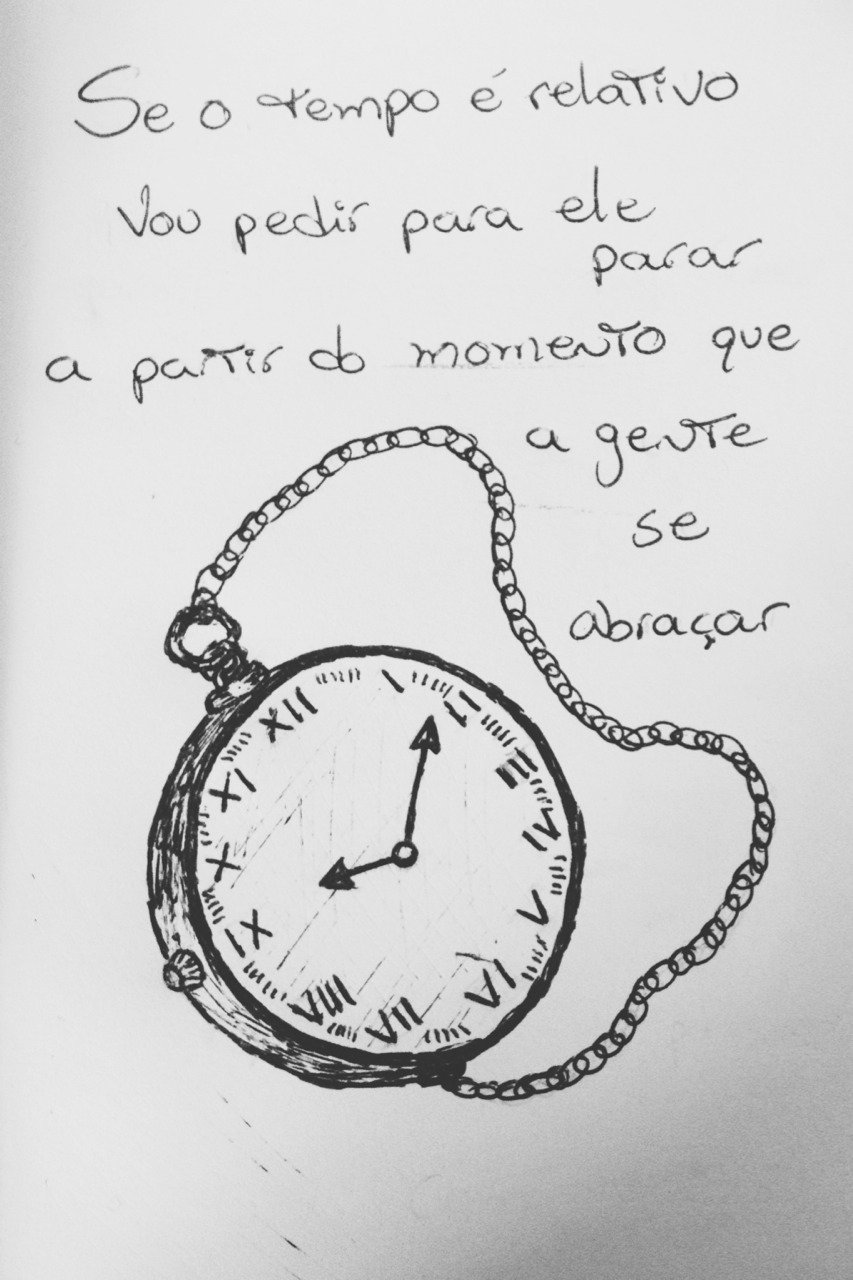 Se o tempo é relativo
Vou pedir para ele
parar
a partir do momento que
a gente
se
abraçar
XII
I
II
III
IV
V
VI
VII
VIII
IX
X
XI